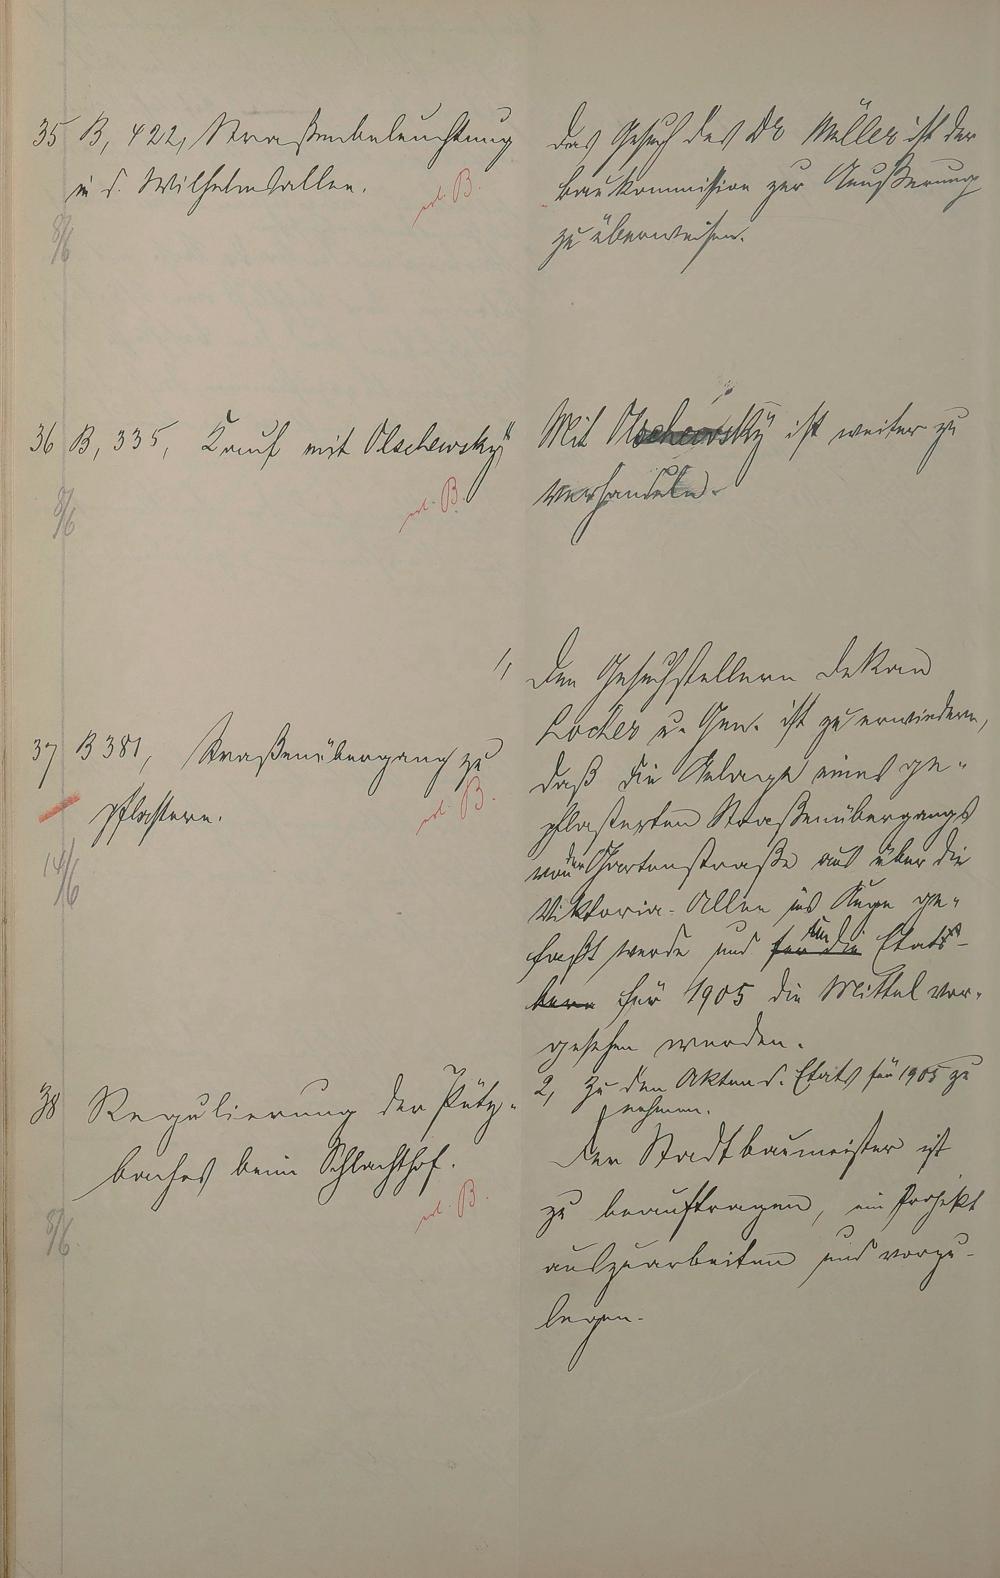 35 B, 422, Straßenbeleuchtung
in d. Wilhelmsallee.
erl. B.
8/6
Das Gesuch des Dr Müller ist der
Baukommission zur Äußerung
zu überweisen.
36 B, 335, Kauf mit Olschewsky
erl. B.
8/6
Mit Olschewsky ist weiter zu
verhandeln.
37 B 381, Straßenübergang zu
pflastern.
erl. B.
14/6
1, Den Gesuchstellern Dekan
Locher u. Gen. ist zu erwiedern,
daß die Anlage eines ge-
pflasterten Straßenübergangs
von der Gartenstraße aus über die
Viktoria-Allee ins Auge ge-
faßt werde und für die Etats-
für 1905 die Mittel vor-
gesehen werden.
2, Zu den Akten d. Etats für 1905 zu
nehmen.
38 Regulierung der Pütz-
baches beim Schlachthof.
erl. B.
8/6.
Der Stadtbaumeister ist
zu beauftragen, ein Projekt
auszuarbeiten und vorzu-
legen.